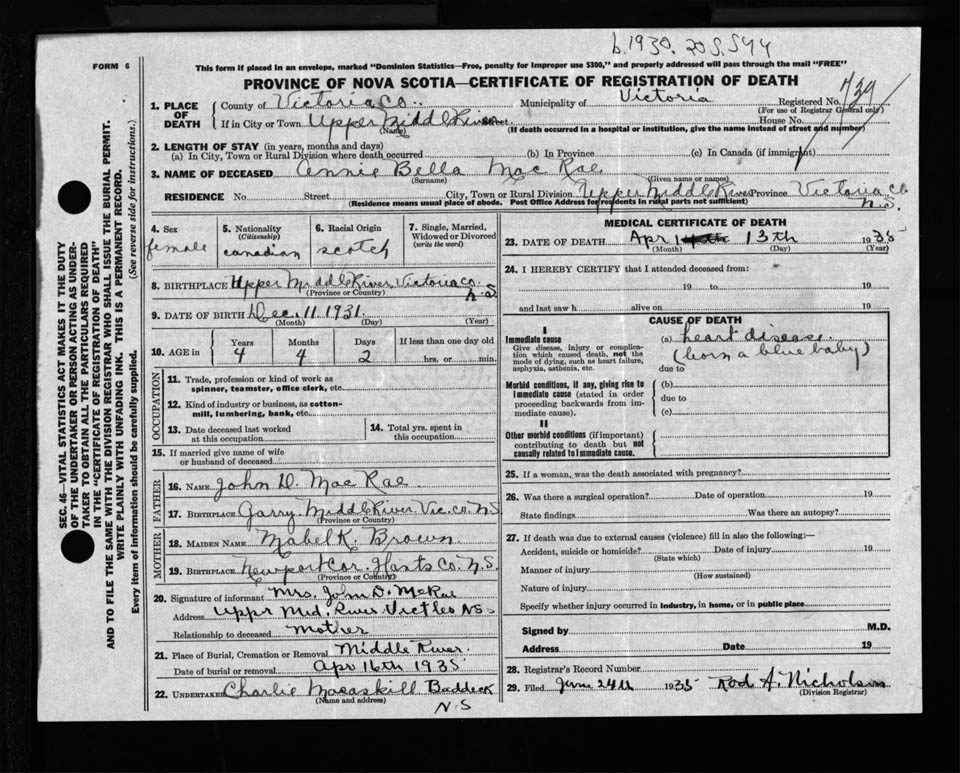 b. 1930. 20 S. 544
FORM 6
This form if placed in an envelope, marked "Dominion Statistics—Free, penalty for improper use $300," and properly addressed will pass through the mail "FREE"
PROVINCE OF NOVA SCOTIA—CERTIFICATE OF REGISTRATION OF DEATH
SEC. 46—VITAL STATISTICS ACT MAKES IT THE DUTY
OF THE UNDERTAKER OR PERSON ACTING AS UNDER-
TAKER TO OBTAIN ALL THE PARTICULARS REQUIRED
IN THE "CERTIFICATE OF REGISTRATION OF DEATH"
AND TO FILE THE SAME WITH THE DIVISION REGISTRAR WHO SHALL ISSUE THE BURIAL PERMIT.
WRITE PLAINLY WITH UNFADING INK. THIS IS A PERMANENT RECORD.
Every item of information should be carefully supplied. (See reverse side for instructions.)
1. PLACE OF DEATH
County of Victoria Co. Municipality of Victoria Registered No. 739
(For use of Registrar General only)
If in City or Town Upper Middle River Street House No.
(Name) (If death occurred in a hospital or institution, give the name instead of street and number)
2. LENGTH OF STAY (in years, months and days)
(a) In City, Town or Rural Division where death occurred (b) In Province (c) In Canada (if immigrant)
3. NAME OF DECEASED Annie Bella Mac Rae
(Surname) (Given name or names)
RESIDENCE No. Street City, Town or Rural Division Upper Middle River Province Victoria Co
N.S.
(Residence means usual place of abode. Post Office Address for residents in rural parts not sufficient)
4. Sex
female
5. Nationality
(Citizenship)
canadian
6. Racial Origin
scotch
7. Single, Married,
Widowed or Divorced
(write the word)
8. BIRTHPLACE Upper Middle River Victoria Co.
N.S.
(Province or Country)
9. DATE OF BIRTH Dec. 11. 1931.
(Month) (Day) (Year)
10. AGE in
Years Months Days If less than one day old
4 4 2 hrs. or min.
OCCUPATION
11. Trade, profession or kind of work as
spinner, teamster, office clerk, etc.
12. Kind of industry or business, as cotton-
mill, lumbering, bank, etc.
13. Date deceased last worked
at this occupation
14. Total yrs. spent in
this occupation
15. If married give name of wife
or husband of deceased
FATHER
16. NAME John D. Mac Rae
17. BIRTHPLACE Garry Middle River Vic. co. N.S.
(Province or Country)
MOTHER
18. MAIDEN NAME Mabel K. Brown.
19. BIRTHPLACE Newport Cor. Hants Co. N.S.
(Province or Country)
20. Signature of informant Mrs. John D. McRae
Address Uppr Mid. River Vict Co NS
Relationship to deceased mother
21. Place of Burial, Cremation or Removal Middle River
Date of burial or removal Apr 16th 1935
22. UNDERTAKER Charlie Macaskill Baddeck
(Name and address)
N.S
MEDICAL CERTIFICATE OF DEATH
23. DATE OF DEATH Apr 13th 1935
(Month) (Day) (Year)
24. I HEREBY CERTIFY that I attended deceased from:
19 to 19
and last saw h alive on 19
CAUSE OF DEATH
I
Immediate cause
Give disease, injury or compli-
cation which caused death, not the
mode of dying, such as heart failure,
asphyxia, asthenia, etc.
(a) heart disease.
(born a blue baby)
due to
Morbid conditions, if any, giving rise to
immediate cause (stated in order
proceeding backwards from im-
mediate cause).
(b)
due to
(c)
II
Other morbid conditions (if important)
contributing to death but not
causally related to immediate cause.
25. If a woman, was the death associated with pregnancy?
26. Was there a surgical operation? Date of operation 19
State findings Was there an autopsy?
27. If death was due to external causes (violence) fill in also the following:—
Accident, suicide or homicide? Date of injury 19
(State which)
Manner of injury
(How sustained)
Nature of injury
Specify whether injury occurred in industry, in home, or in public place
Signed by M.D.
Address Date 19
28. Registrar's Record Number
29. Filed June 24th 1935 Rod A. Nicholson
(Division Registrar)